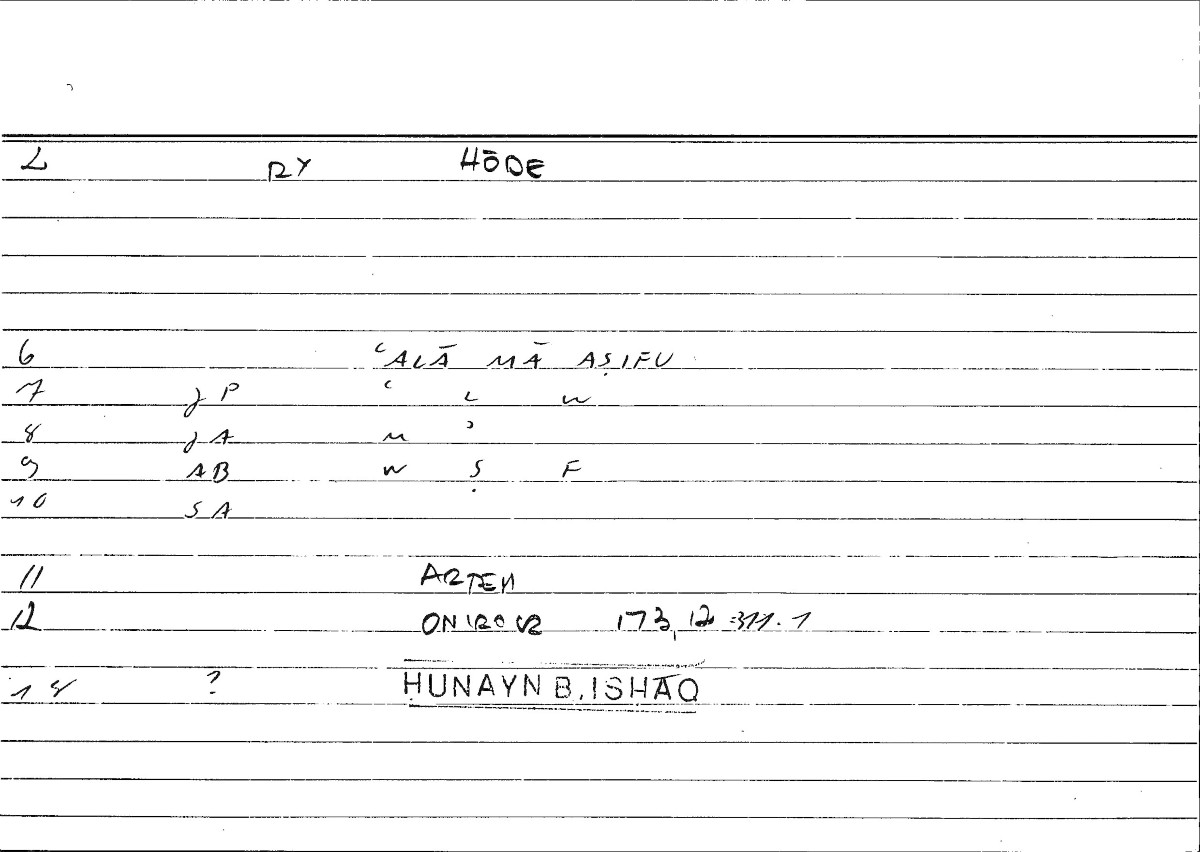 2 RY HŌDE
6 ʿALĀ MĀ AṢIFU
7 JP ʿ L W
8 JA M ʾ
9 AB W Ṣ F
10 SA
11 ARTEM
12 ONIROCR 173,12 = 311.1
14 ? ḤUNAYN B. ISḤĀQ